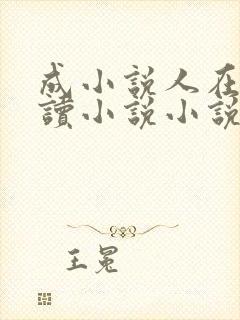 成小說人在
讀小說小說
王冕